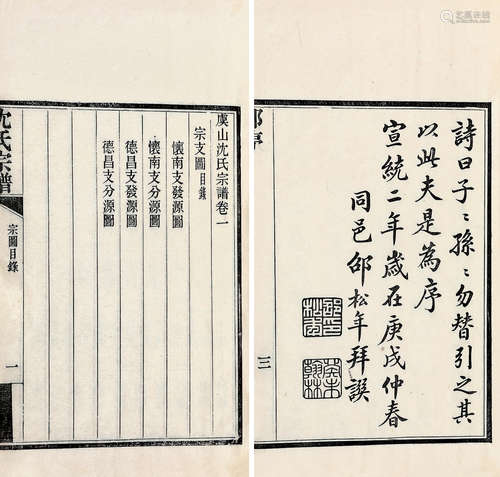 詩曰子〻孫〻勿替引之其
以此夫是為序
宣統二年歲在庚戌仲春
同邑邵松年拜譔
三
虞山沈氏宗譜卷一
宗支圖目錄
懷南支發源圖
懷南支分源圖
德昌支發源圖
德昌支分源圖
沈氏宗譜
宗圖目錄
一